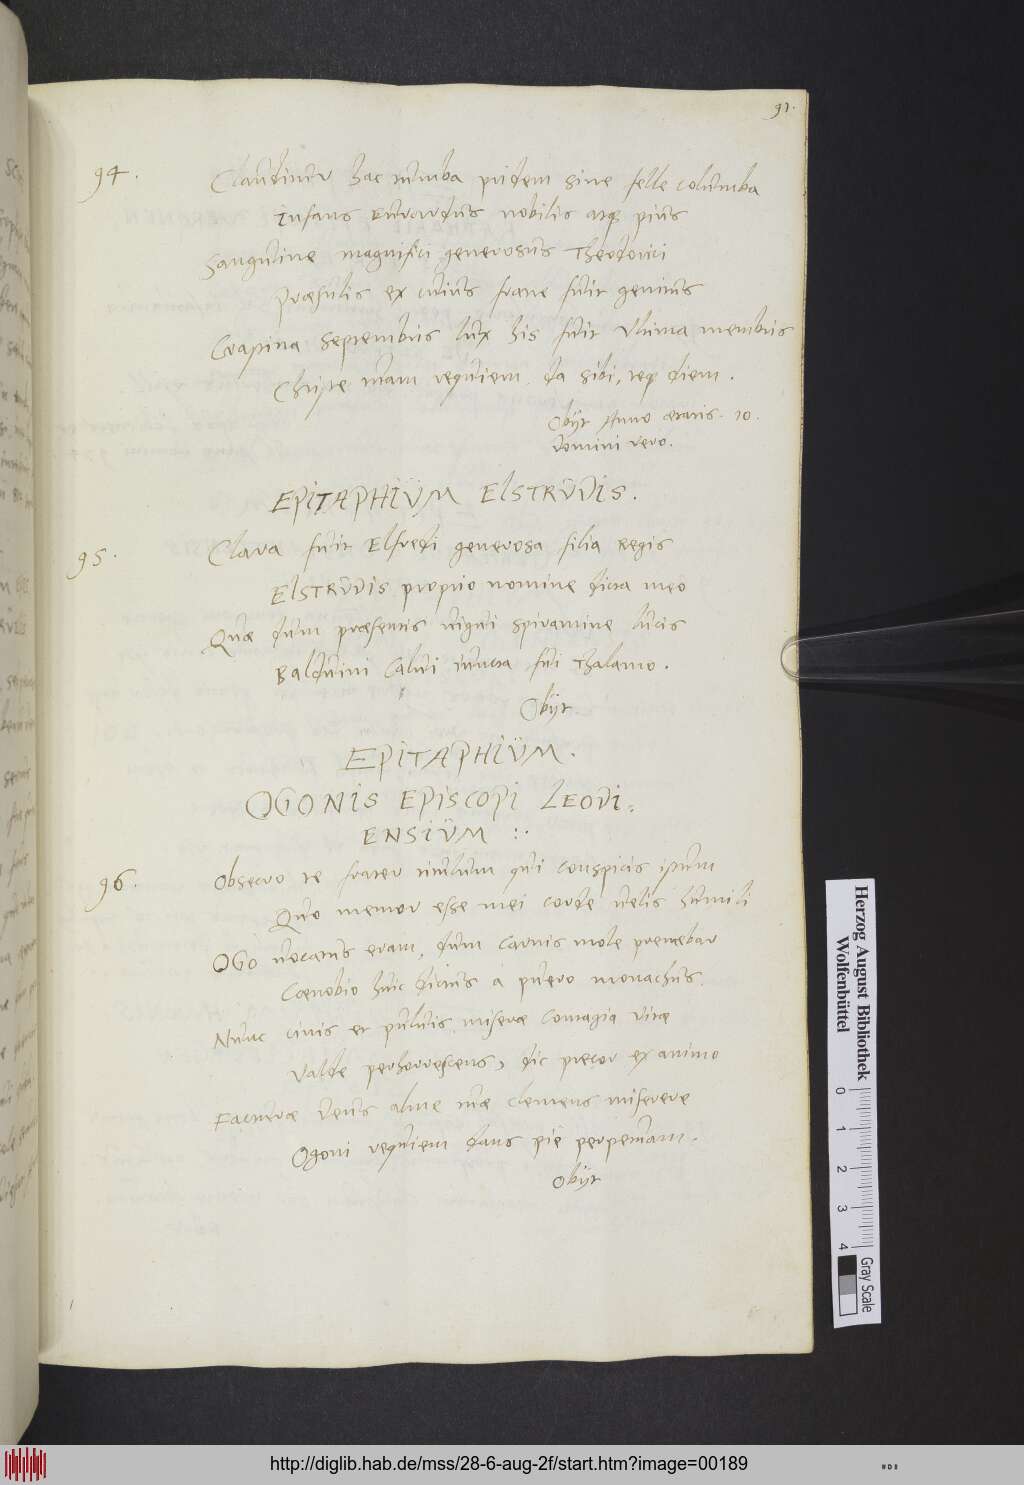 91.
94.
Clauditur hac tumba pridem sine felle columba
Infans Eurardus nobilis atq pius
Sanguine magnifici generosus Theodorici
Præsulis ex cuius fratre fuit genitus
Crastina Septembris lux his fuit ultima membris
Christe tuam requiem da sibi, teq diem.
Obijt Anno ætatis. 10.
domini vero.
EPITAPHIŬM ElSTRŬDIS.
95.
Clara fuit Elfredi generosa filia Regis
ElSTRŬDIS proprio nomine dicta meo
Quæ dum præsentis uigui spiramine lucis
Balduini Calui iuncta fui thalamo.
Obijt.
EPITAPHIŬM.
OGONIS EPISCOPI LEODI:
ENSIŬM :.
96.
Obsecro te frater titulum qui conspicis istum
Quo memor esse mei corde uelis humili
OGO uocatus eram, dum carnis mole premebar
Cœnobio huic dicatus a puero monachus.
Nunc cinis et puluis, miseræ contagia vitæ
Valde perhorrescens, dic precor ex animo
Facturæ Deus alme tuæ clemens miserere
Ogoni requiem dans pie perpetuam.
Obijt
Herzog August Bibliothek
Wolfenbüttel
0 1 2 3 4
Gray Scale
http://diglib.hab.de/mss/28-6-aug-2f/start.htm?image=00189